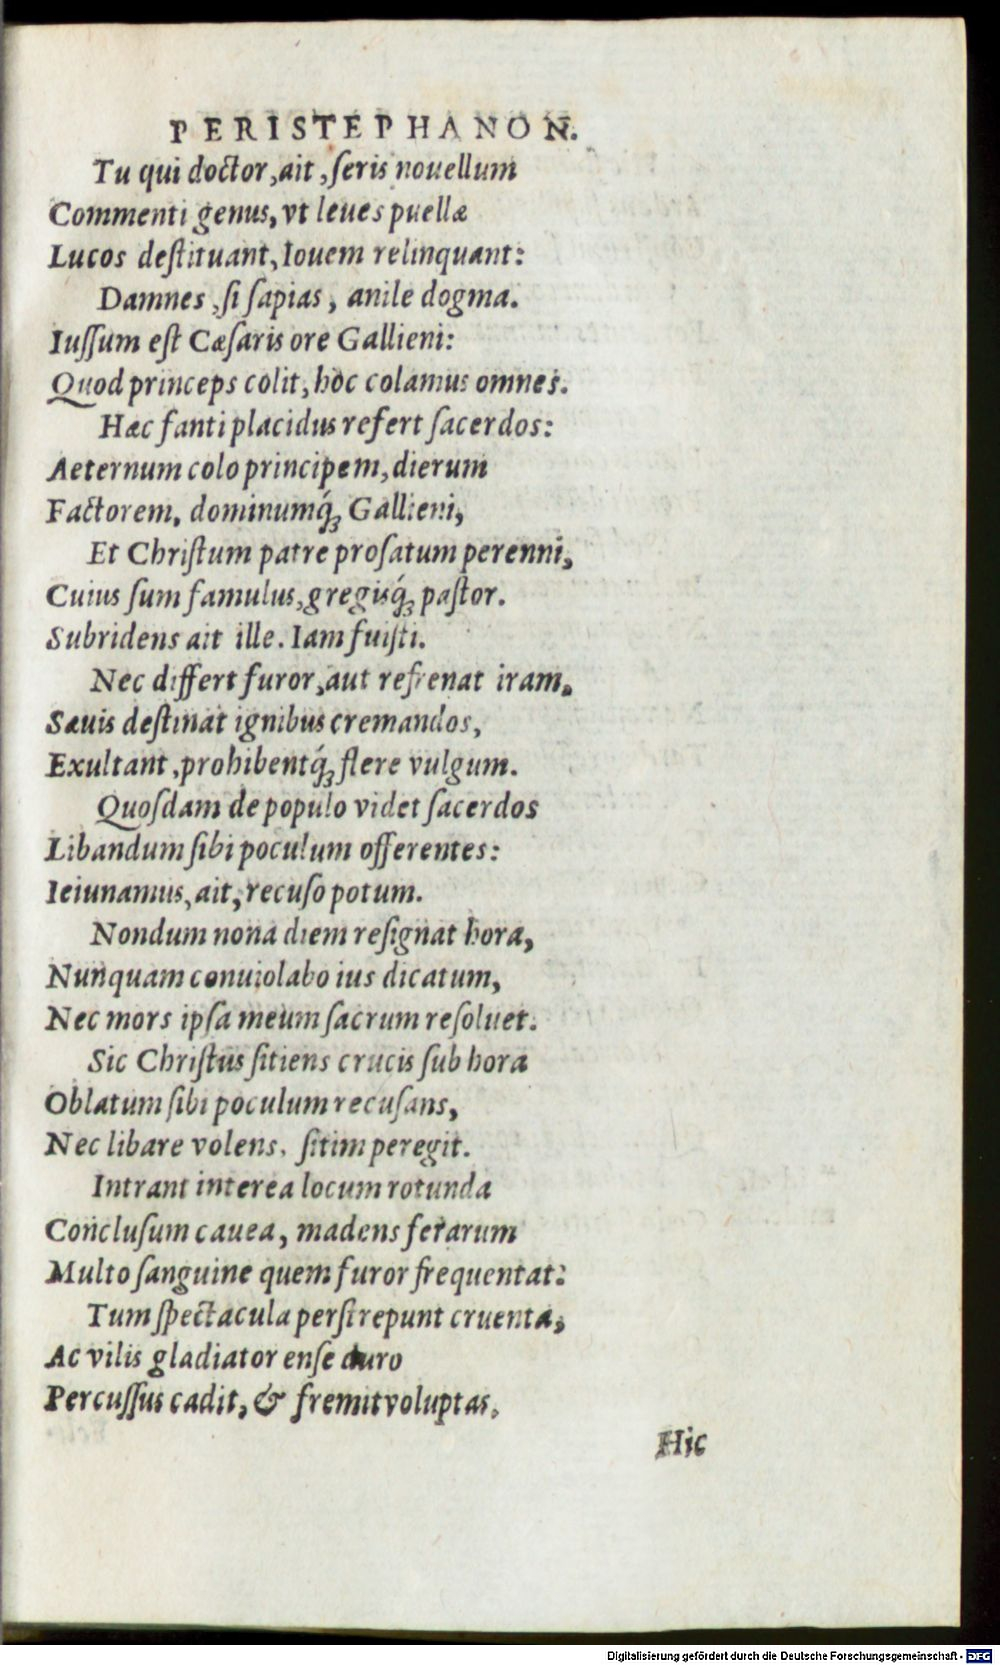 PERISTEPHANON.
Tu qui doctor, ait, ſeris nouellum
Commenti genus, vt leues puellæ
Lucos deſtituant, Iouem relinquant:
Damnes, ſi ſapias, anile dogma.
Iuſſum eſt Cæſaris ore Gallieni:
Quod princeps colit, hoc colamus omnes.
Hæc fanti placidus refert ſacerdos:
Aeternum colo principem, dierum
Factorem, dominumq́ꝫ Gallieni,
Et Chriſtum patre proſatum perenni,
Cuius ſum famulus, gregisq́ꝫ paſtor.
Subridens ait ille. Iam fuiſti.
Nec differt furor, aut refrenat iram,
Sæuis deſtinat ignibus cremandos,
Exultant, prohibentq́ꝫ flere vulgum.
Quoſdam de populo videt ſacerdos
Libandum ſibi poculum offerentes:
Ieiunamus, ait, recuſo potum.
Nondum nona diem reſignat hora,
Nunquam conuiolabo ius dicatum,
Nec mors ipſa meum ſacrum reſoluet.
Sic Chriſtus ſitiens crucis ſub hora
Oblatum ſibi poculum recuſans,
Nec libare volens, ſitim peregit.
Intrant interea locum rotunda
Concluſum cauea, madens ferarum
Multo ſanguine quem furor frequentat:
Tum ſpectacula perſtrepunt cruenta,
Ac vilis gladiator enſe duro
Percuſſus cadit, & fremit voluptas.
Hic
Digitalisierung gefördert durch die Deutsche Forschungsgemeinschaft - DFG